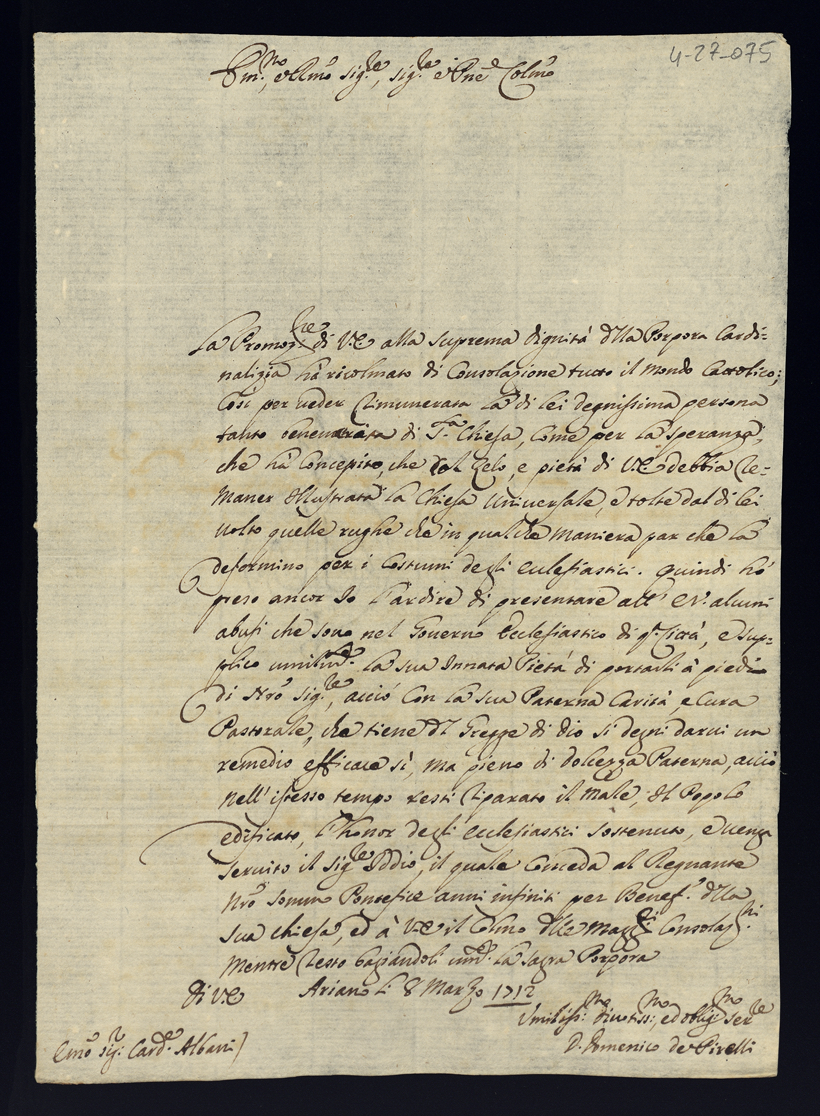 4-27-075
Em.mo, e Rmo Sig.re, Sig.re e Pne Colmo
La Promoz.ne di V.E. alla suprema dignità d'lla Porpora Cardi-
nalizia hà ricolmato di Consolazione tutto il Mondo Cattolico;
Così per veder rimunerata la di lei degnissima persona
tanto benemerita di S.ta Chiesa, come per la speranza,
che hà concepito, che col zelo, e pietà di V.E. debbia re-
maner illustrata la Chiesa Universale, e tolte dal di lei
volto quelle rughe che in qualche maniera par che la
deformino per i costumi degli ecclesiastici. Quindi hò
preso ancor Io l'ardire di presentare all' E.V. alcuni
abusi che sono nel Governo Ecclesiastico di q.ta Città, e sup-
plico umilm.te la sua Innata Pietà di portarli à piedi
di Nro Sig.re, acciò con la sua Paterna Carità, e Cura
Pastorale, che tiene d'l Gregge di Dio si degni darvi un
remedio efficace sì, ma pieno di dolcezza Paterna, acciò
nell'istesso tempo resti riparato il male, il Popolo
edificato, l'honor degli ecclesiastici sostenuto, e venga
servito il Sig.re Iddio, il quale conceda al Regnante
Nro Sommo Pontefice anni infiniti per Benef.o d'lla
sua chiesa, ed à V.E. il colmo d'lle magg.ri Consolaz.ni
Mentre resto bagiandoli um.te la sagra Porpora
di V.E. Ariano li 8 Marzo 1712
Umiliss.mo divotiss.mo, ed oblig.mo ser.re
D. Domenico de Pirelli
Emo Sig.r Card.e Albani